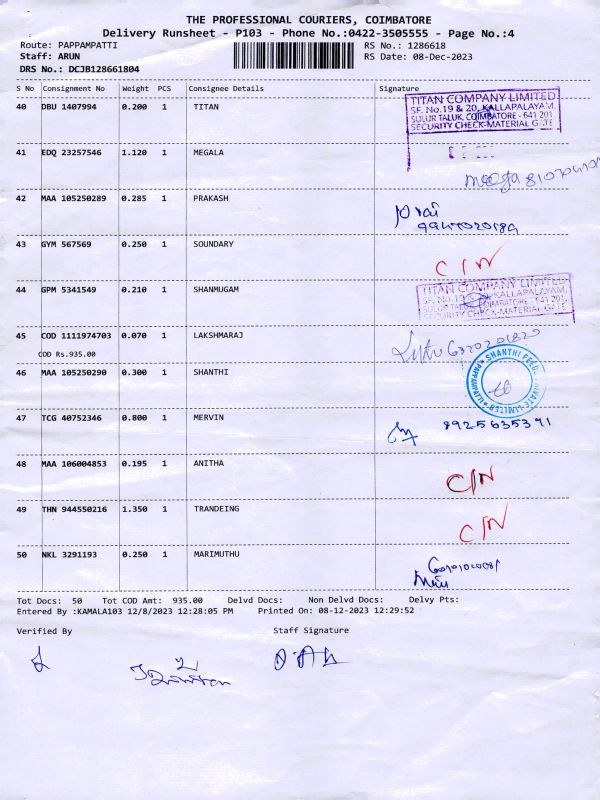 THE PROFESSIONAL COURIERS, COIMBATORE
Delivery Runsheet - P103 - Phone No.:0422-3505555 - Page No.:4
Route: PAPPAMPATTI RS No.: 1286618
Staff: ARUN RS Date: 08-Dec-2023
DRS No.: DCJB128661804
S No Consignment No Weight PCS Consignee Details Signature
40 DBU 1407994 0.200 1 TITAN
TITAN COMPANY LIMITED
SF. No.19 & 20, KALLAPALAYAM,
SULUR TALUK, COIMBATORE - 641 201
SECURITY CHECK-MATERIAL GATE
41 EDQ 23257546 1.120 1 MEGALA
42 MAA 105250289 0.285 1 PRAKASH
43 GYM 567569 0.250 1 SOUNDARY C/N
44 GPM 5341549 0.210 1 SHANMUGAM
TITAN COMPANY LIMITED
SF. No.19 & 20, KALLAPALAYAM,
SULUR TALUK, COIMBATORE - 641 201,
SECURITY CHECK-MATERIAL GATE
45 COD 1111974703 0.070 1 LAKSHMARAJ
COD Rs.935.00
46 MAA 105250290 0.300 1 SHANTHI
47 TCG 40752346 0.800 1 MERVIN 8925635391
48 MAA 106004853 0.195 1 ANITHA C/N
49 THN 944550216 1.350 1 TRANDEING C/N
50 NKL 3291193 0.250 1 MARIMUTHU
Tot Docs: 50 Tot COD Amt: 935.00 Delvd Docs: Non Delvd Docs: Delvy Pts:
Entered By :KAMALA103 12/8/2023 12:28:05 PM Printed On: 08-12-2023 12:29:52
Verified By Staff Signature